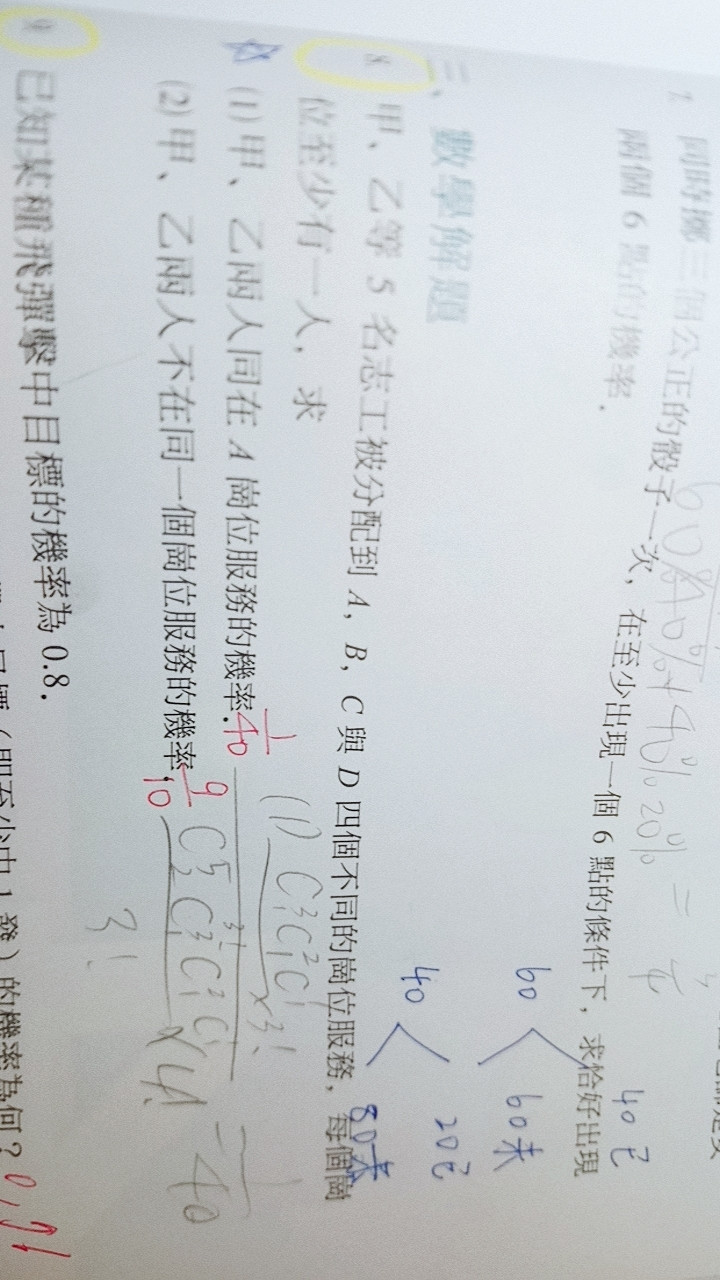 7. 同時擲三個公正的骰子一次，在至少出現一個 6 點的條件下，求恰好出現
兩個 6 點的機率．
40已
60 60未
40 20已
80未
三、數學解題
8. 甲、乙等 5 名志工被分配到 A，B，C 與 D 四個不同的崗位服務，每個崗
位至少有一人，求
(1) 甲、乙兩人同在 A 崗位服務的機率．1/40
(2) 甲、乙兩人不在同一個崗位服務的機率．9/10
(1) C³₁C²₁C¹₁ / 3! ×3!
C⁵₂C³₁C²₁C¹₁ / 3! ×4!
= 1/40
9. 已知某種飛彈擊中目標的機率為 0.8．
（即至少中 1 發）的機率為何？